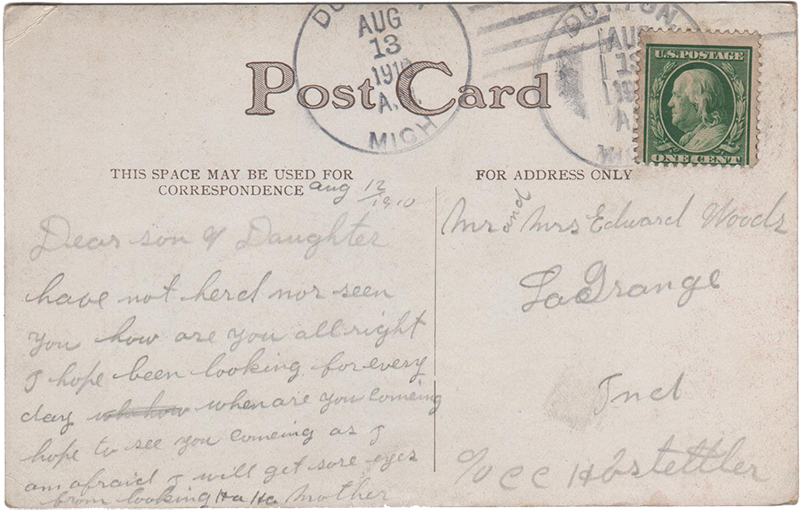 DUTTON
AUG
13
1910
A.M.
MICH
DUTTON
AUG
13
MICH
U.S. POSTAGE
ONE CENT
Post Card
THIS SPACE MAY BE USED FOR
CORRESPONDENCE
FOR ADDRESS ONLY
aug 12
1910
Dear son & Daughter
have not herd nor seen
you how are you all right
I hope been looking for every
day when are you comeing
hope to see you comeing as I
am afraid I will get sore eyes
from looking Ha Ha Mother
Mr and Mrs Edward Woods
LaGrange
Ind
c/o C C Hostettler